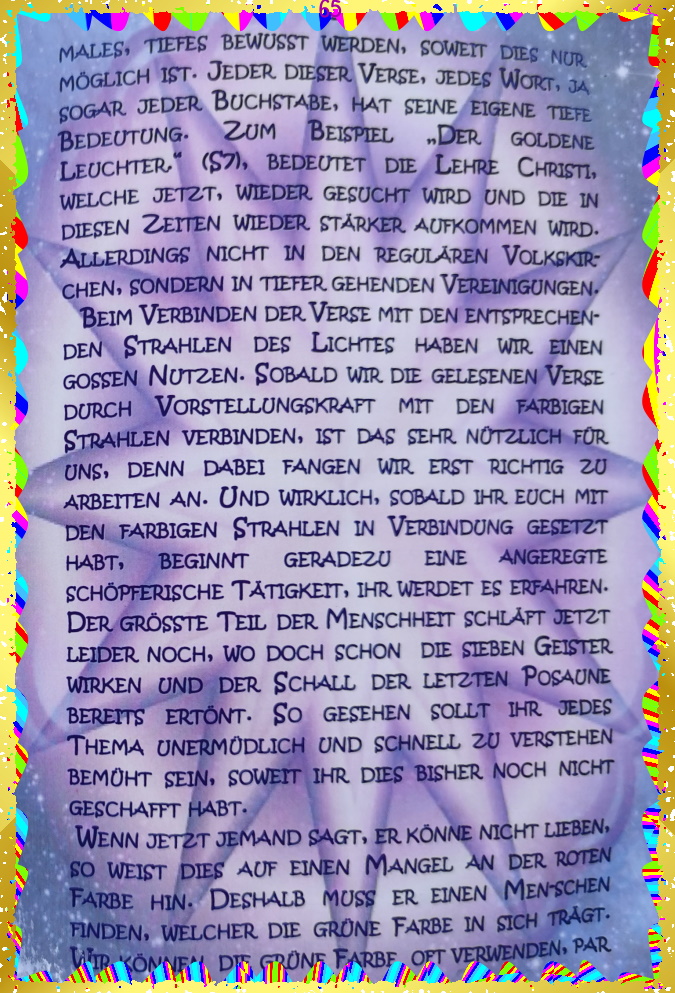 65
MALES, TIEFES BEWUSST WERDEN, SOWEIT DIES NUR
MÖGLICH IST. JEDER DIESER VERSE, JEDES WORT, JA
SOGAR JEDER BUCHSTABE, HAT SEINE EIGENE TIEFE
BEDEUTUNG. ZUM BEISPIEL „DER GOLDENE
LEUCHTER“ (S7), BEDEUTET DIE LEHRE CHRISTI,
WELCHE JETZT, WIEDER GESUCHT WIRD UND DIE IN
DIESEN ZEITEN WIEDER STÄRKER AUFKOMMEN WIRD.
ALLERDINGS NICHT IN DEN REGULÄREN VOLKSKIR-
CHEN, SONDERN IN TIEFER GEHENDEN VEREINIGUNGEN.
BEIM VERBINDEN DER VERSE MIT DEN ENTSPRECHEN-
DEN STRAHLEN DES LICHTES HABEN WIR EINEN
GOSSEN NUTZEN. SOBALD WIR DIE GELESENEN VERSE
DURCH VORSTELLUNGSKRAFT MIT DEN FARBIGEN
STRAHLEN VERBINDEN, IST DAS SEHR NÜTZLICH FÜR
UNS, DENN DABEI FANGEN WIR ERST RICHTIG ZU
ARBEITEN AN. UND WIRKLICH, SOBALD IHR EUCH MIT
DEN FARBIGEN STRAHLEN IN VERBINDUNG GESETZT
HABT, BEGINNT GERADEZU EINE ANGEREGTE
SCHÖPFERISCHE TÄTIGKEIT, IHR WERDET ES ERFAHREN.
DER GRÖSSTE TEIL DER MENSCHHEIT SCHLÄFT JETZT
LEIDER NOCH, WO DOCH SCHON DIE SIEBEN GEISTER
WIRKEN UND DER SCHALL DER LETZTEN POSAUNE
BEREITS ERTÖNT. SO GESEHEN SOLLT IHR JEDES
THEMA UNERMÜDLICH UND SCHNELL ZU VERSTEHEN
BEMÜHT SEIN, SOWEIT IHR DIES BISHER NOCH NICHT
GESCHAFFT HABT.
WENN JETZT JEMAND SAGT, ER KÖNNE NICHT LIEBEN,
SO WEIST DIES AUF EINEN MANGEL AN DER ROTEN
FARBE HIN. DESHALB MUSS ER EINEN MEN-SCHEN
FINDEN, WELCHER DIE GRÜNE FARBE IN SICH TRÄGT.
WIR KÖNNEN DIE GRÜNE FARBE OFT VERWENDEN, PAR